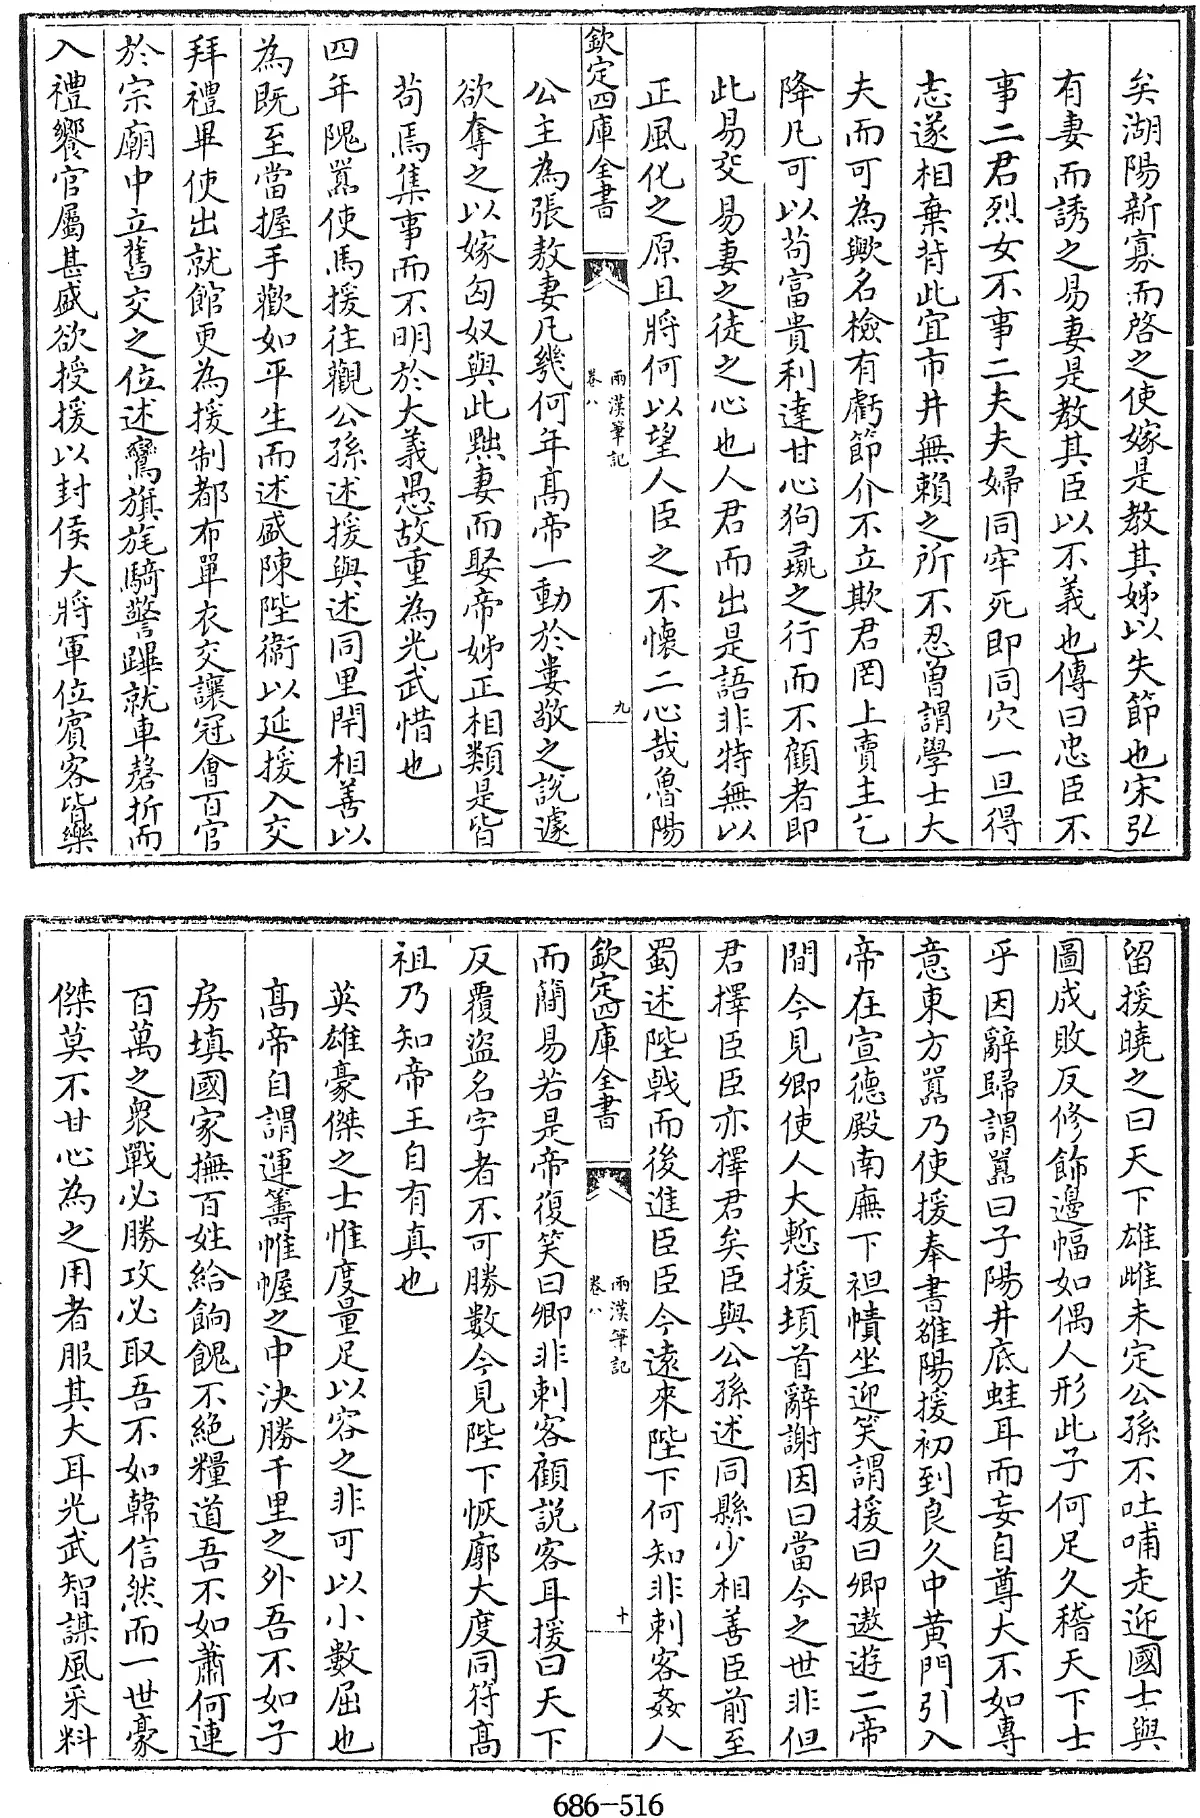 矣湖陽新寡而啓之使嫁是教其姊以失節也宋弘
有妻而誘之易妻是教其臣以不義也傳曰忠臣不
事二君烈女不事二夫夫婦同牢死即同穴一旦得
志遂相棄背此宜市井無賴之所不忍曽謂學士大
夫而可為歟名檢有虧節介不立欺君罔上賣主乞
降凡可以茍富貴利達甘心狗彘之行而不顧者即
此易交易妻之徒之心也人君而出是語非特無以
正風化之原且將何以望人臣之不懷二心哉魯陽
欽定四庫全書
兩漢筆記
卷八
九
公主為張敖妻凡幾何年髙帝一動於婁敬之說遽
欲奪之以嫁匈奴與此黜妻而娶帝姊正相類是皆
茍焉集事而不明於大義愚故重為光武惜也
四年隗囂使馬援往觀公孫述援與述同里閈相善以
為既至當握手歡如平生而述盛陳陛衞以延援入交
拜禮畢使出就館更為援制都布單衣交讓冠會百官
於宗廟中立舊交之位述鸞旗旄騎警蹕就車磬折而
入禮饗官屬甚盛欲授援以封侯大將軍位賓客皆樂
留援曉之曰天下雄雌未定公孫不吐哺走迎國士與
圖成敗反修飾邊幅如偶人形此子何足久稽天下士
乎因辭歸謂囂曰子陽井底蛙耳而妄自尊大不如專
意東方囂乃使援奉書雒陽援初到良久中黄門引入
帝在宣德殿南廡下袒幘坐迎笑謂援曰卿遨遊二帝
間今見卿使人大慙援頓首辭謝因曰當今之世非但
君擇臣臣亦擇君矣臣與公孫述同縣少相善臣前至
蜀述陛戟而後進臣臣今遠來陛下何知非刺客姦人
欽定四庫全書
兩漢筆記
卷八
十
而簡易若是帝復笑曰卿非刺客顧說客耳援曰天下
反覆盜名字者不可勝數今見陛下恢廓大度同符髙
祖乃知帝王自有真也
英雄豪傑之士惟度量足以容之非可以小數屈也
髙帝自謂運籌帷幄之中決勝千里之外吾不如子
房填國家撫百姓給餉餽不絶糧道吾不如蕭何連
百萬之衆戰必勝攻必取吾不如韓信然而一世豪
傑莫不甘心為之用者服其大耳光武智謀風采料
686-516